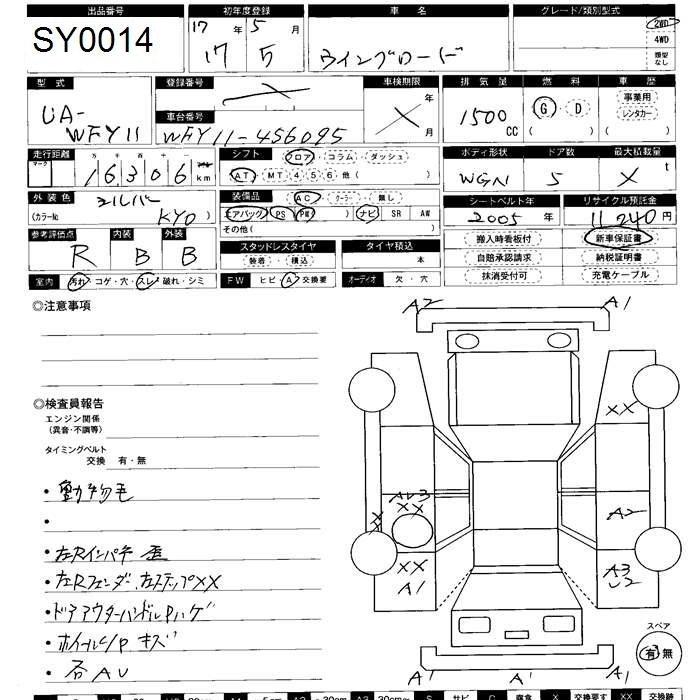 出品番号 初年度登録 車名 グレード/類別型式
SY0014 17年 5月 2WD
17 5 ウイングロード 4WD
類型なし
型式 登録番号 車検期限 排気量 燃料 車歴
UA- × 年 1500 G・D 事業用
WFY11 車台番号 × レンタカー
WFY11-456095 月 CC ( ) ( )
走行距離 シフト フロア・コラム・ダッシュ ボディ形状 ドア数 最大積載量
マーク 万 千 百 十 一
16306 km AT・MT 4 5 6 他( ) WGN 5 × t
外装色 シルバー 装備品 AC・クーラー・無し シートベルト年 リサイクル預託金
(カラーNo. KY0) エアバッグ PS PW ナビ SR AW 2005年 11,240円
その他( )
参考評価点 内装 外装 スタッドレスタイヤ タイヤ積込 搬入時看板付 新車保証書
R B B 装着・積込 本 自賠承認請求 納税証明書
室内 汚れ・コゲ・穴・スレ・破れ・シミ FW ヒビ・A・交換要 オーディオ 欠・穴 抹消受付可 充電ケーブル
◎注意事項
A2 A1
◎検査員報告
エンジン関係
(異音・不調等)
XX
タイミングベルト
交換 有・無
・動物毛
AU3
XX
XX
A2
・
・左Rインパネ 歪
・左Rフェンダ.左ステップXX
XX
A1
A3
U2
・ドアアウターハンドルハゲ
・ホイールC/P キズ
スペア
有 無
・各AU
A1 A1 A1